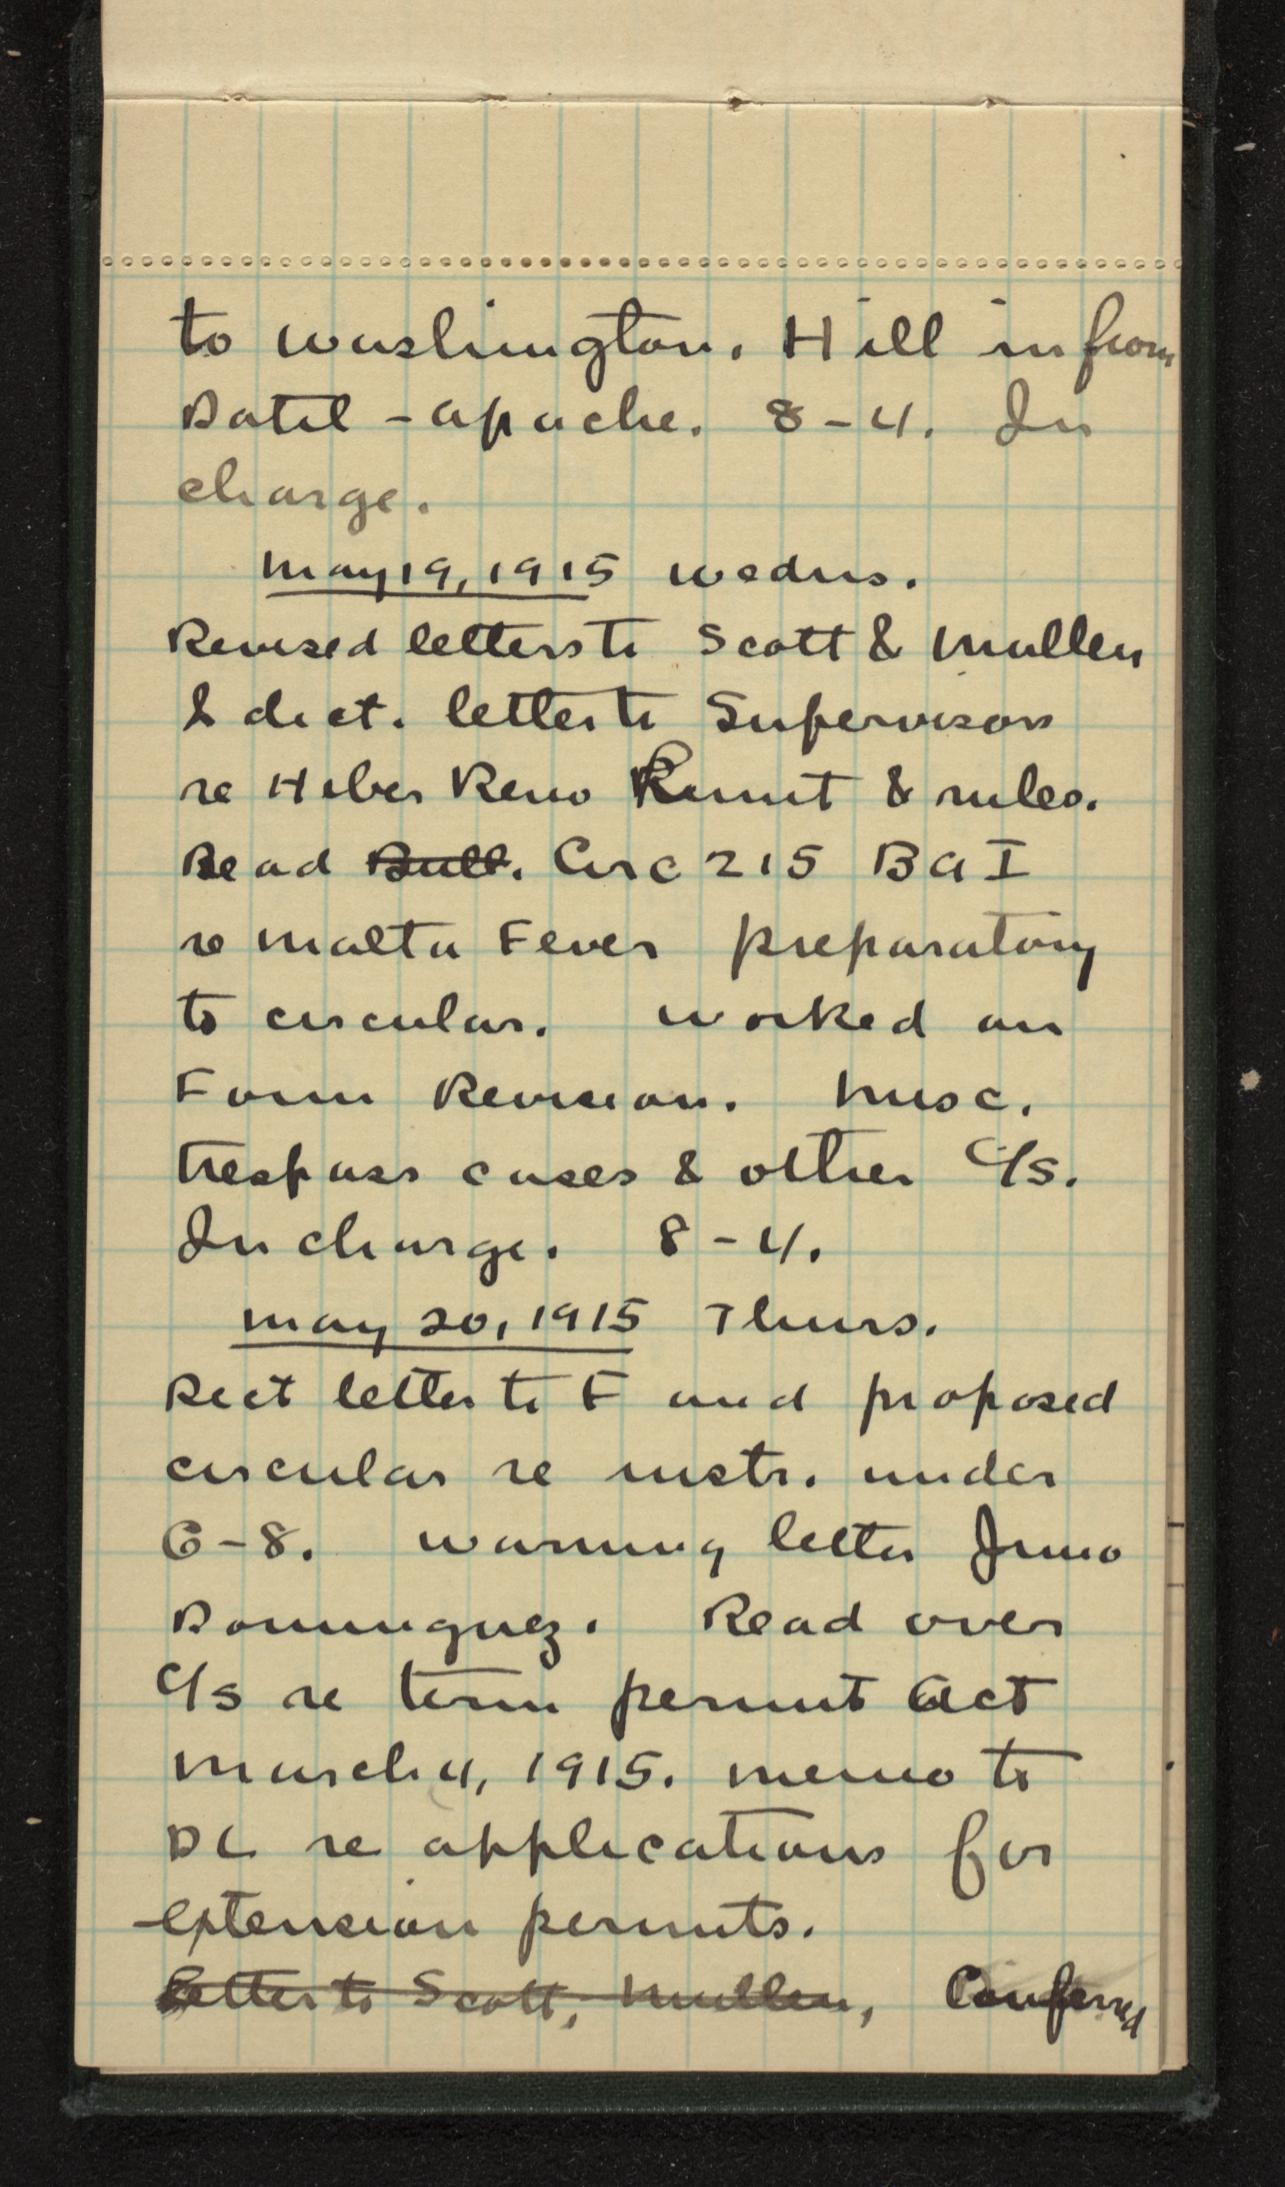 to Washington. Hill in from
Datil - Apache. 8-4. In
charge.
May 19, 1915 Wednes.
Revised letters to Scott & Mullen
& dict. letter to Supervisors
re Heber Reno Permit & rules.
Read Bull. Circ 215 B A I
re Malta Fever preparatory
to circular. Worked on
Form Revision. Misc.
trespass cases & other C/s.
In charge. 8-4.
May 20, 1915 Thurs.
Dict letter to F and proposed
circular re instr. under
G-8. Warning letter
Dominguez. Read over
C/s re term permit Act
March 4, 1915. Memo to
DL re applications for
extension permits.
Letter to Scott, Mullen, Conferred